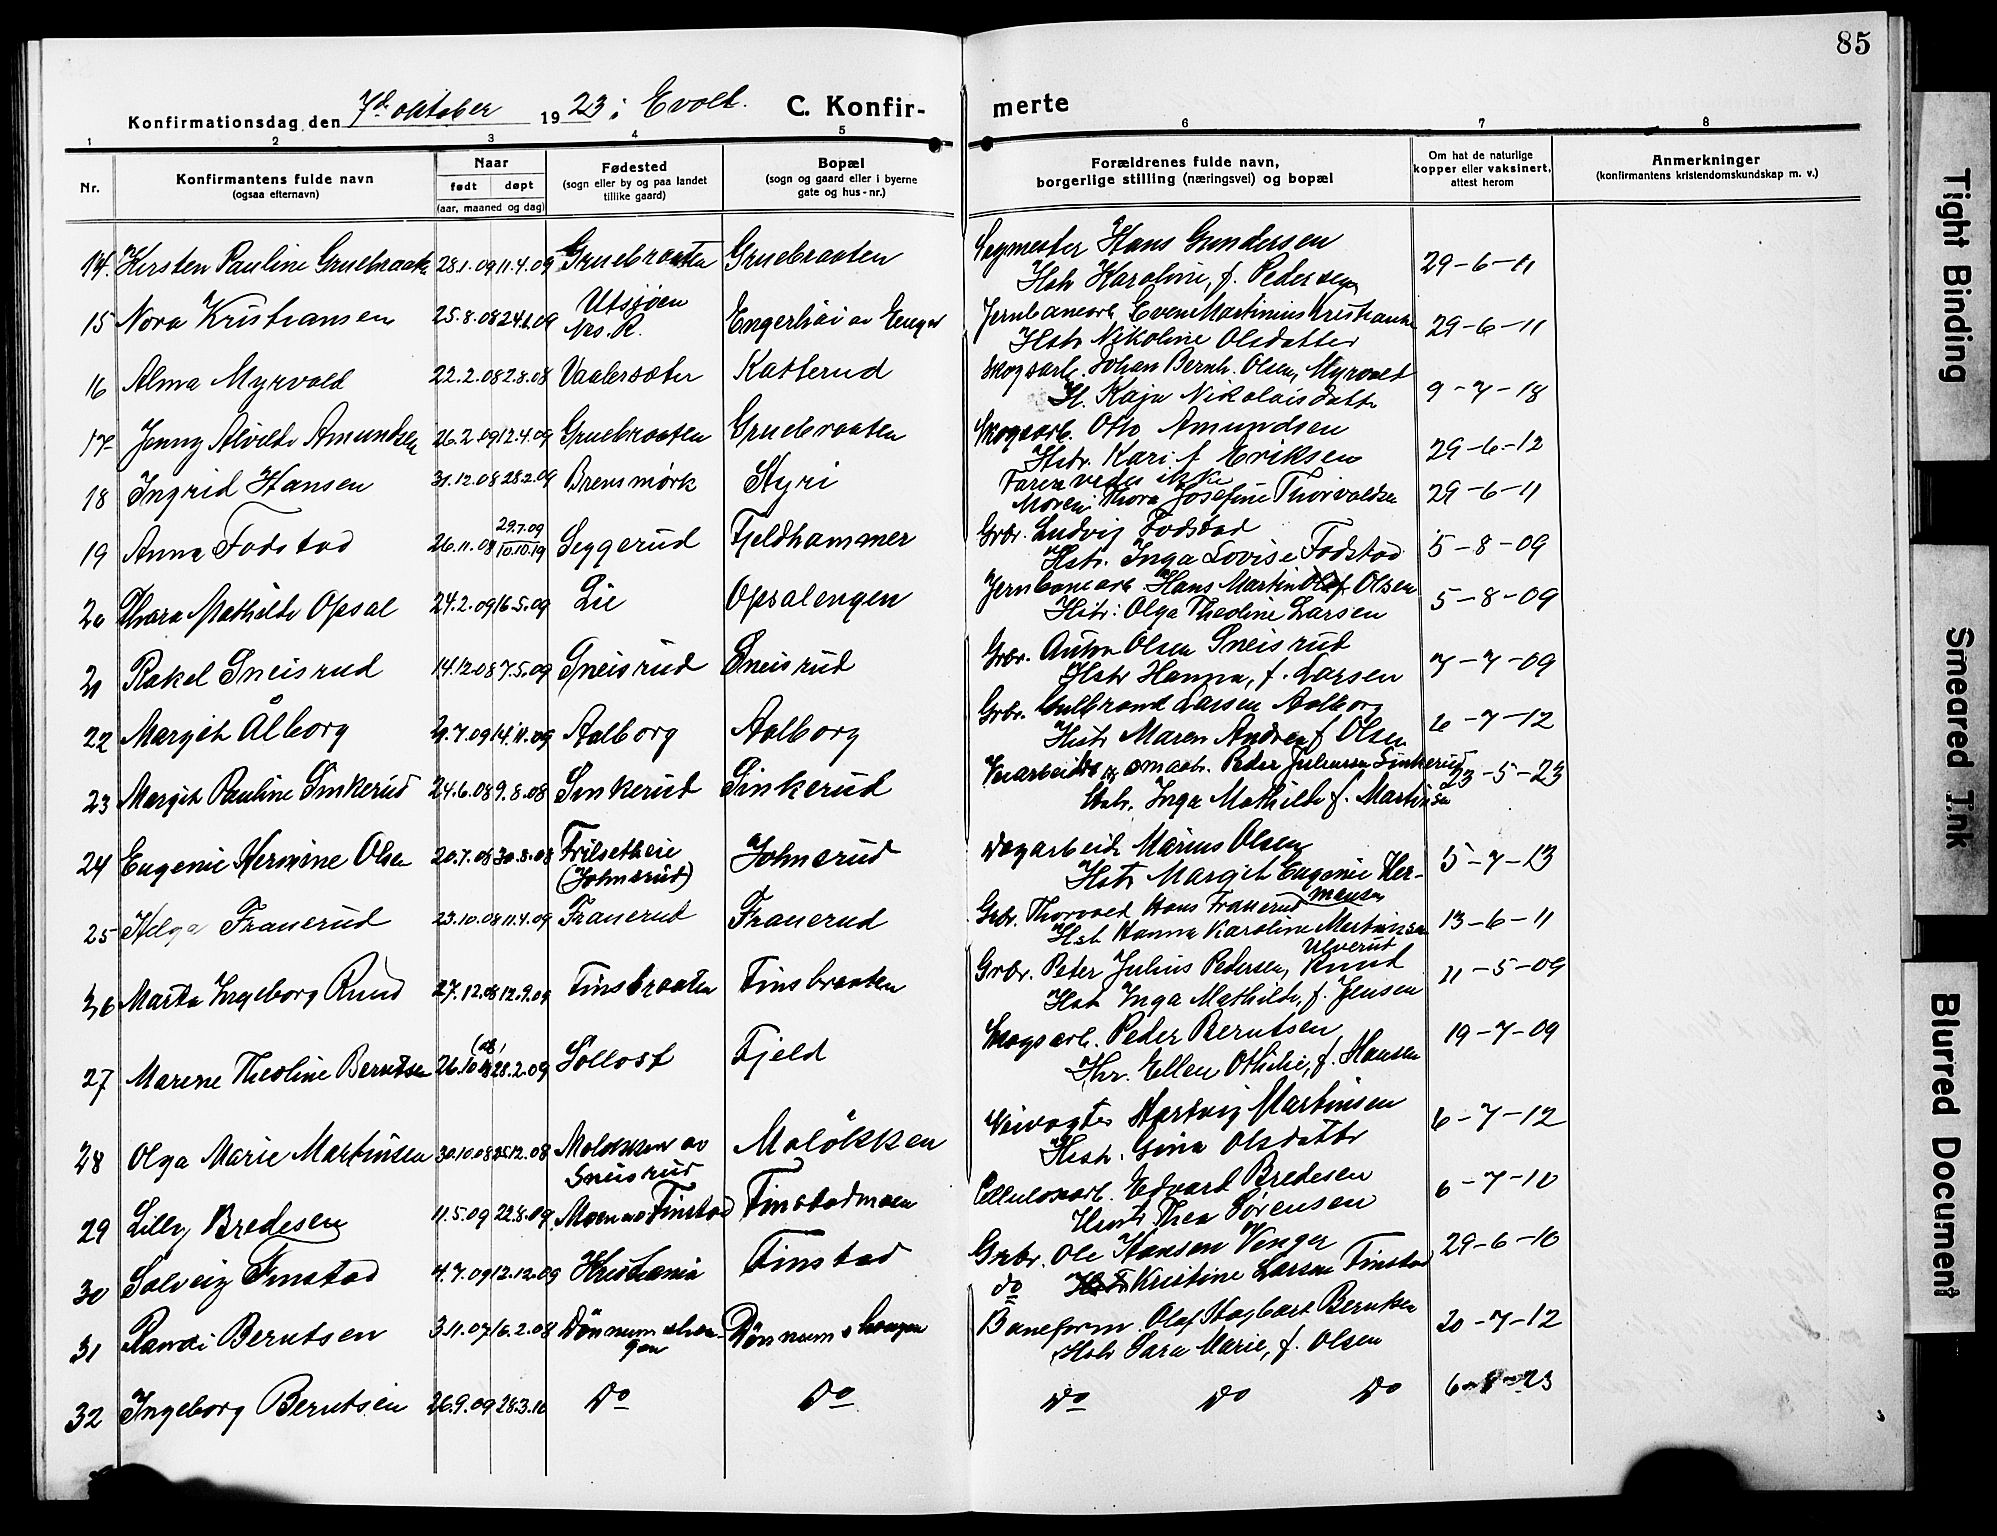 85
Konfirmationsdag den 7d oktober 1923 i Evolt. C. Konfirmerte
1 2 3 4 5 6 7 8
Nr. Konfirmantens fulde navn (ogsaa efternavn) Naar født døpt (aar, maaned og dag) Fødested (sogn eller by og paa landet tillike gaard) Bopæl (sogn og gaard eller i byerne gate og hus-nr.) Forældrenes fulde navn, borgerlige stilling (næringsvei) og bopæl Om hat de naturlige kopper eller vaksinert, attest herom Anmerkninger (konfirmantens kristendomskundskap m. v.)
14. Kirsten Pauline Gruebraaten 28.1.09 11.4.09 Gruebraaten Gruebraaten Sagmester Hans Gundersen 29-6-11
Hstr Karoline, f. Pedersen
15 Nora Kristiansen 25.8.08 24.1.09 Utsjøen Nrs. R. Engerhøi av Enger Jernbanearb. Even Martinius Kristiansen 29-6-11
Hstr Nikoline Olsdatter
16 Alma Myrvold 22.2.08 2.8.08 Vaalersæter Katterud Skogsarb. Johan Bernh. Olsen, Myrvold 9-7-18
H. Kaja Nikolaisdatter
17 Jenny Alvilde Amundsen 26.2.09 12.4.09 Gruebraaten Gruebraaten Skogsarb. Otto Amundsen 29-6-12
Hstr. Kari f Eriksen
18 Ingrid Hansen 31.12.08 28.2.09 Brensmørk Styri Faren vedes ikke 29-6-11
Moren: Thora Josefine Thorvaldsen
19 Anna Fodstad 26.11.08 29.7.09 10.10.19 Seggerud Fjeldhammer Grbr. Ludvig Fodstad 5-8-09
Hstr. Inga Lovise Fodstad
20 Thora Mathilde Opsal 24.2.09 16.5.09 Lie Opsalengen Jernbanearb Hans Martin Olsen 5-8-09
Hstr: Olga Theoline Larsen
21 Rakel Sneisrud 14.12.08 7.5.09 Sneisrud Sneisrud Grbr. Anton Olsen Sneisrud 7-7-09
Hstr Hanna, f. Larsen
22 Margit Ålborg 21.7.09 14.11.09 Aalborg Aalborg Grbr. Gulbrand Larsen Aalborg 6-7-12
Hstr Maren Andrea f Olsen
23 Margit Pauline Sinkerud 24.6.08 9.8.08 Sinkerud Sinkerud Veiarbeider og smaabr. Peder Juliussen Sinkerud 23-5-23
Hstr. Inga Mathilde f. Martinsen
24 Eugenie Hermine Olsen 20.7.08 30.8.08 Frilsetheie (Johnsrud) Johnsrud Dagarbeid. Marius Olsen 5-7-13
Hstr Margit Eugenie Hermansen
25 Helga Frauerud 23.10.08 11.4.09 Frauerud Frauerud Grbr. Thorvald Hans Frauerud 13-6-11
Hstr Hanna Karoline Martinsen
26 Marta Ingeborg Ruud 27.12.08 12.9.09 Finsbraaten Finsbraaten Grbr. Peter Julius Pedersen, Ulverud Ruud 11-5-09
Hstr Inga Mathilde, f. Jensen
27 Marene Theoline Berntsen 26.10.08 28.2.09 Sollost Fjeld Skogsarb. Peder Berntsen 19-7-09
Hr. Ellen Othilie, f. Hansen
28 Olga Marie Martinsen 30.10.08 25.12.08 Moløkken av Sneisrud Moløkken Veivogter Hartvig Martinsen 6-7-12
Hstr. Gina Olsdattr
29 Lilly Bredesen 11.5.09 22.8.09 Moen av Finstad Finstadmoen Cellulosearb. Edvard Bredesen 6-7-10
Hustr Thea Sørensen
30 Solveig Finstad 4.7.09 12.12.09 Kristiania Finstad Grbr. Ole Hansen Venger 29-6-10
do Kristine Larsen Finstad
31 Randi Berntsen 3.11.07 16.2.08 Dønnumshaugen Dønnumshaugen Baneform. Olaf Hagbart Berntsen 20-7-12
Hstr Sara Marie, f. Olsen
32 Ingeborg Berntsen 26.9.09 28.3.10 Do Do Do Do Do 6-8-23
Tight Binding
Smeared Ink
Blurred Document